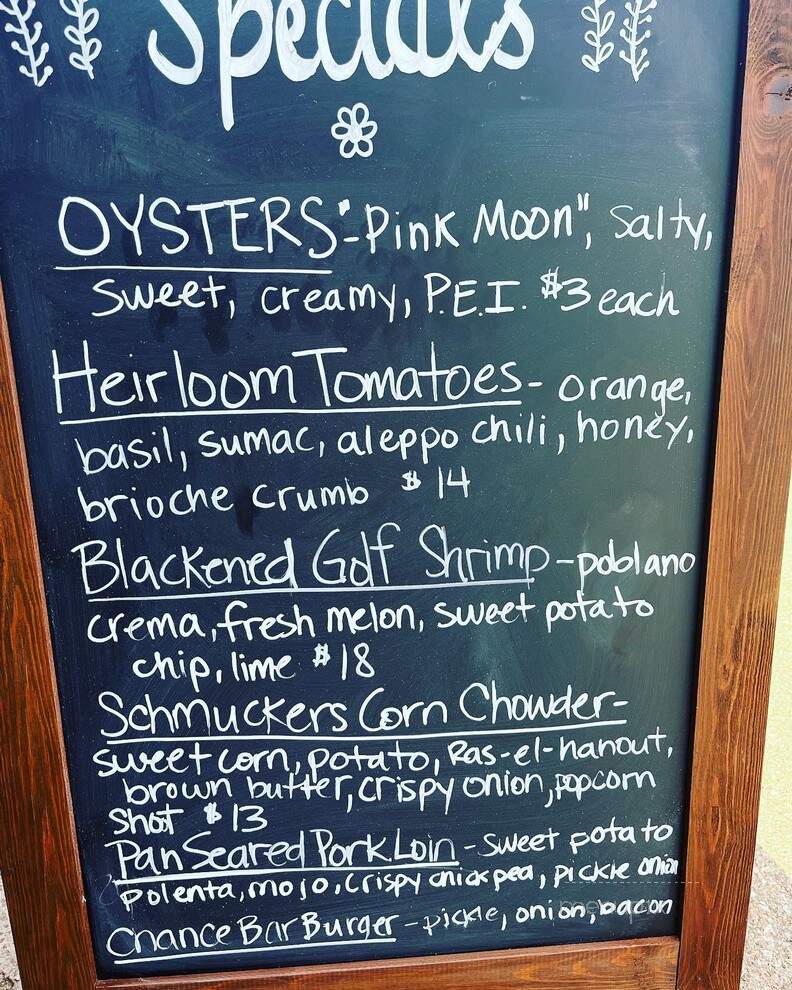 Specials
OYSTERS"-Pink Moon", Salty,
sweet, creamy, P.E.I. $3 each
Heirloom Tomatoes- orange,
basil, sumac, aleppo chili, honey,
brioche crumb $14
Blackened Golf Shrimp-poblano
crema, fresh melon, sweet potato
chip, lime $18
Schmuckers Corn Chowder-
sweet corn, potato, Ras-el-hanout,
brown butter, crispy onion, popcorn
shot $13
Pan Seared Pork Loin - sweet potato
polenta, mojo, crispy chickpea, pickle onion
Chance Bar Burger - pickle, onion, bacon